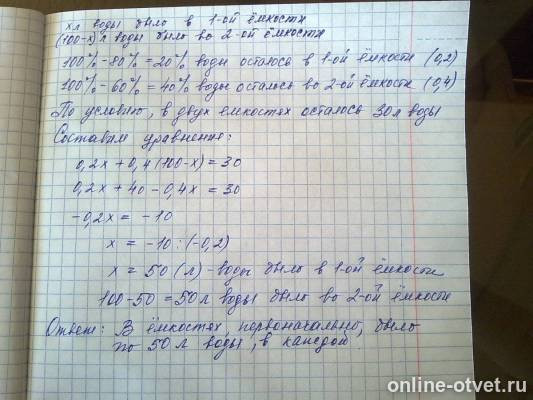 х л воды было в 1-ой ёмкости
(100-х) л воды было во 2-ой ёмкости
100% - 80% = 20% воды осталось в 1-ой ёмкости (0,2)
100% - 60% = 40% воды осталось во 2-ой ёмкости (0,4)
По условию, в двух ёмкостях осталось 30 л воды
Составим уравнение:
0,2х + 0,4(100-х) = 30
0,2х + 40 - 0,4х = 30
-0,2х = -10
х = -10 : (-0,2)
х = 50 (л) - воды было в 1-ой ёмкости
100-50 = 50 л воды было во 2-ой ёмкости
Ответ: В ёмкостях, первоначально, было
по 50 л воды, в каждой.
online-otvet.ru